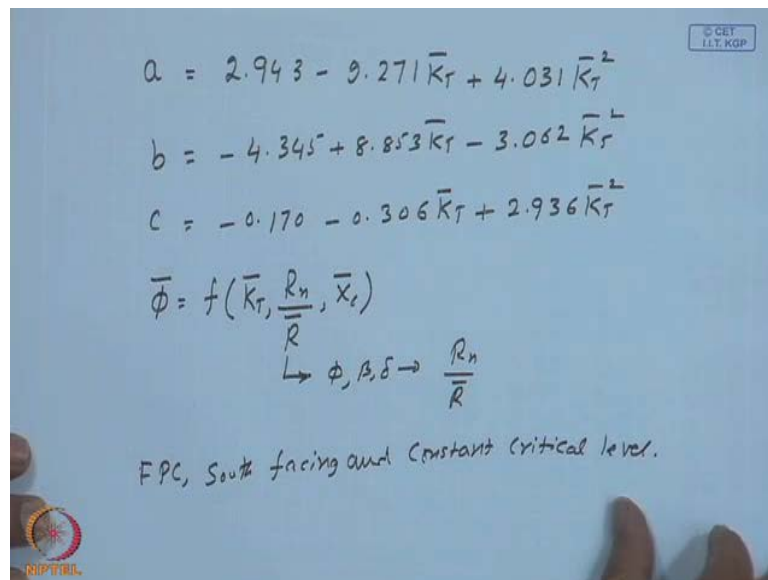 © CET
I.I.T. KGP
a = 2.943 - 9.271 K̄_T + 4.031 K̄_T²
b = - 4.345 + 8.853 K̄_T - 3.062 K̄_T²
c = - 0.170 - 0.306 K̄_T + 2.936 K̄_T²
Φ̄ = f(K̄_T, R_n/R̄, X̄_c)
↳ Φ, β, δ → R_n/R̄
FPC, South facing and Constant Critical level.
NPTEL